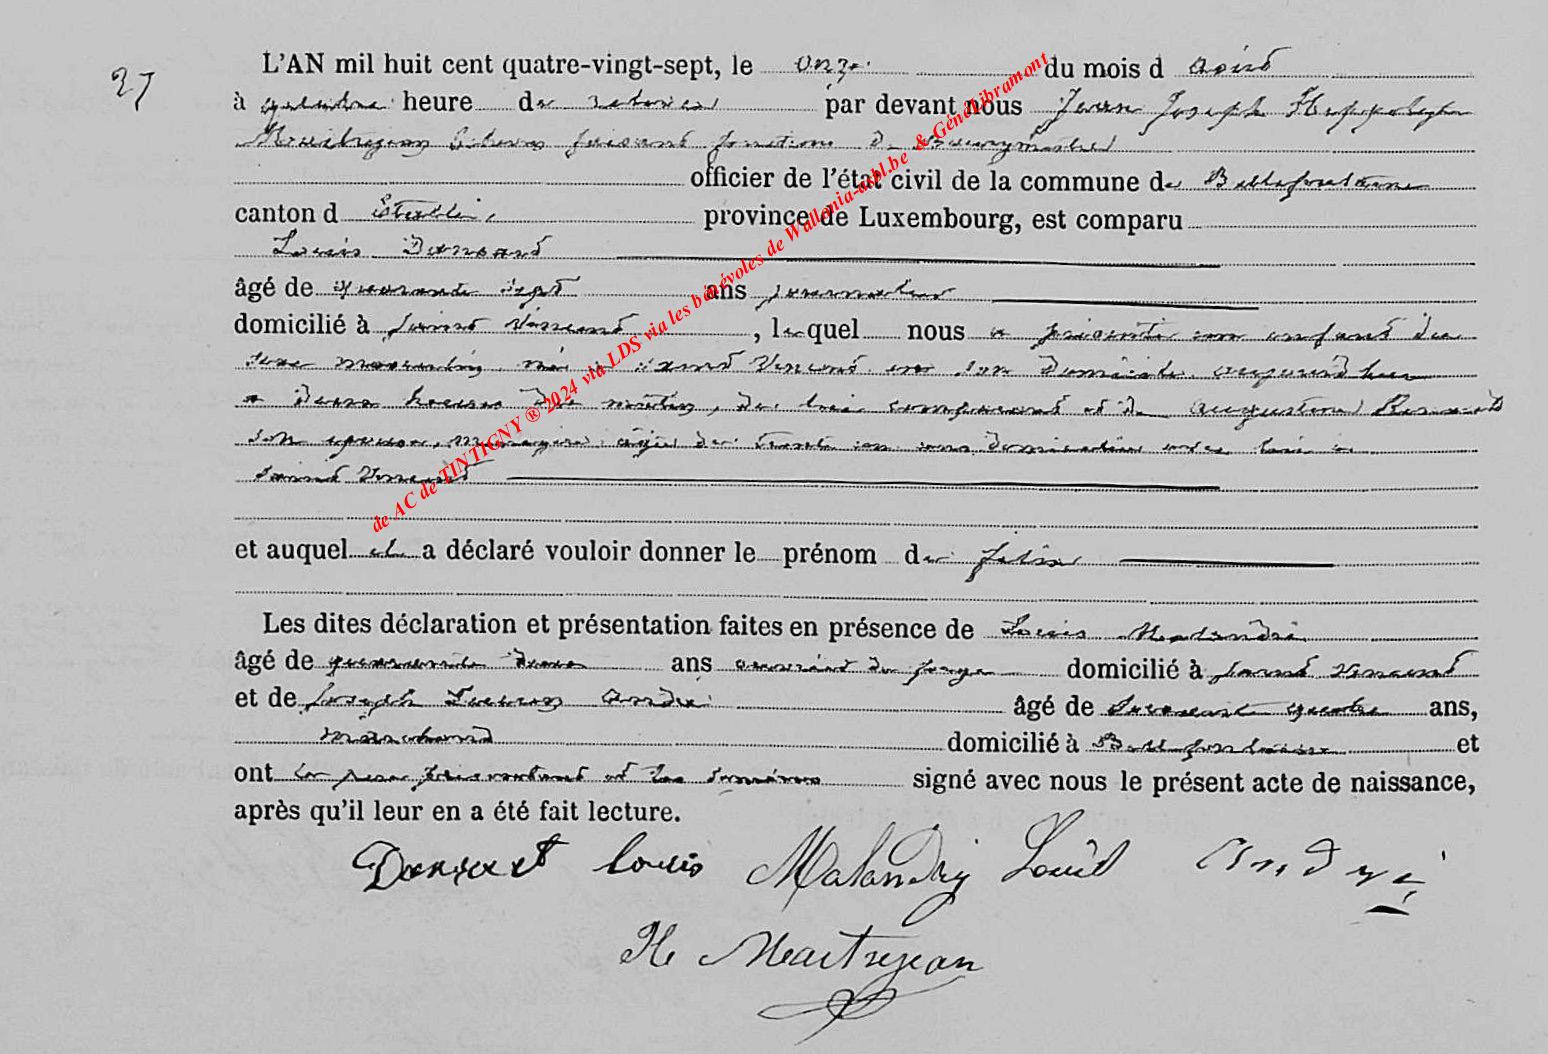 27
L'AN mil huit cent quatre-vingt-sept, le onze du mois d août
à quatre heure de relevée par devant nous Jean Joseph Hyppolyte
Maitrejean Echevin faisant fonction de Bourgmestre
officier de l'état civil de la commune de Bellefontaine
canton d Etalle, province de Luxembourg, est comparu
Louis Dansart
âgé de quarante sept ans journalier
domicilié à Saint Vincent, lequel nous a présenté un enfant du
sexe masculin, né à Saint Vincent en son domicile aujourd'hui
à deux heures du matin, de lui comparant et de Augustine
son épouse, ménagère âgée de trente un ans domiciliée avec lui à
Saint Vincent
et auquel il a déclaré vouloir donner le prénom de Félix
Les dites déclaration et présentation faites en présence de Louis Malandri
âgé de quarante deux ans ouvrier de forge domicilié à Saint Vincent
et de Joseph Lucien André âgé de soixante quatre ans,
marchand domicilié à Bellefontaine et
ont le père présentant et les témoins signé avec nous le présent acte de naissance,
après qu'il leur en a été fait lecture.
Dansart louis Malandry Louis André
H Maitrejean
de AC de TINTIGNY ® 2024 via LDS via les bénévoles de Wallonia-asbl.be & GénéaLibramont